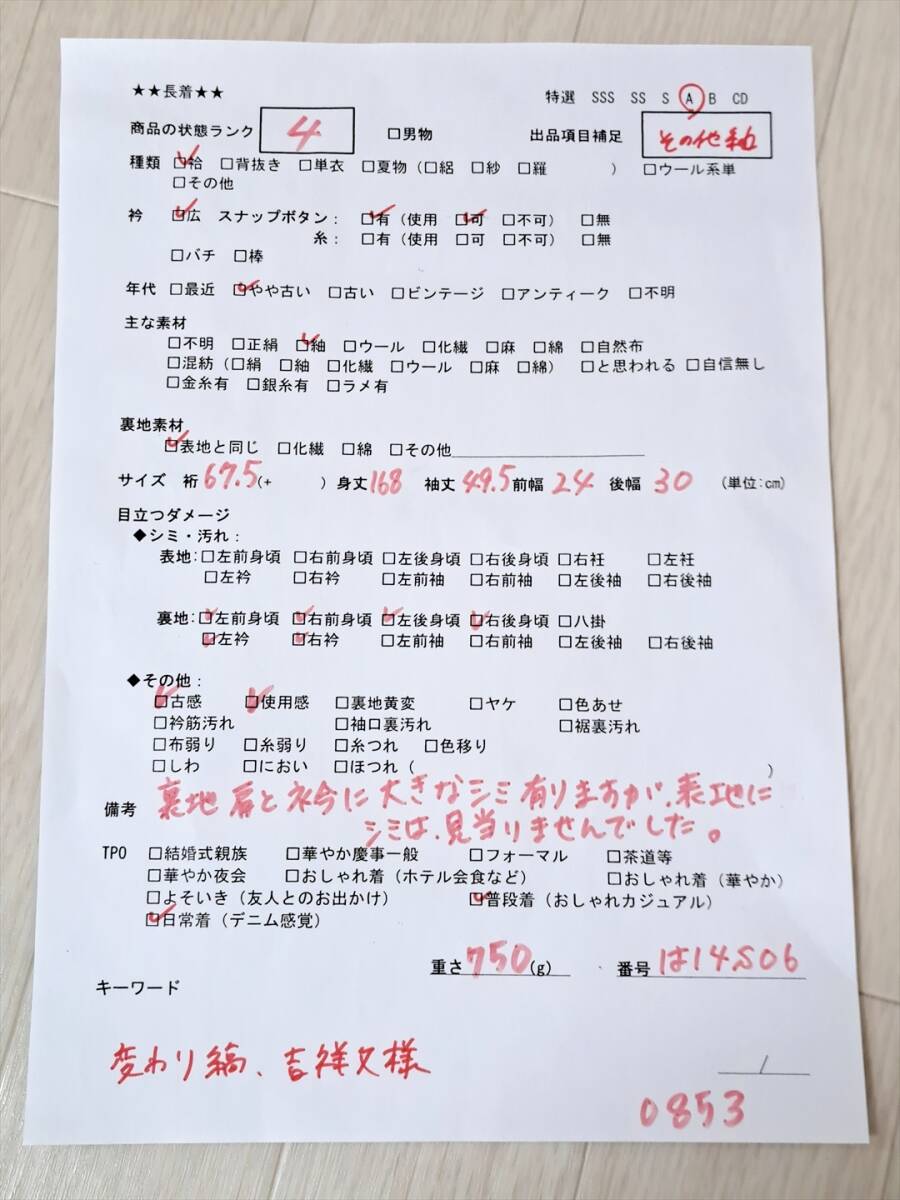 ★★長着★★ 特選 SSS SS S A B CD
商品の状態ランク 4 □男物 出品項目補足 その他紬
種類 ☑袷 □背抜き □単衣 □夏物（□絽 □紗 □羅 ） □ウール系単
□その他
衿 ☑広 スナップボタン： ☑有（使用 ☑可 □不可） □無
糸： □有（使用 □可 □不可） □無
□バチ □棒
年代 □最近 ☑やや古い □古い □ビンテージ □アンティーク □不明
主な素材
□不明 □正絹 ☑紬 □ウール □化繊 □麻 □綿 □自然布
□混紡（□絹 □紬 □化繊 □ウール □麻 □綿） □と思われる □自信無し
□金糸有 □銀糸有 □ラメ有
裏地素材
☑表地と同じ □化繊 □綿 □その他
サイズ 裄 67.5(+ ) 身丈 168 袖丈 49.5 前幅 24 後幅 30 (単位:cm)
目立つダメージ
◆シミ・汚れ：
表地：□左前身頃 □右前身頃 □左後身頃 □右後身頃 □右衽 □左衽
□左衿 □右衿 □左前袖 □右前袖 □左後袖 □右後袖
裏地：☑左前身頃 ☑右前身頃 ☑左後身頃 ☑右後身頃 □八掛
☑左衿 ☑右衿 □左前袖 □右前袖 □左後袖 □右後袖
◆その他：
☑古感 ☑使用感 □裏地黄変 □ヤケ □色あせ
□衿筋汚れ □袖口裏汚れ □裾裏汚れ
□布弱り □糸弱り □糸つれ □色移り
□しわ □におい □ほつれ（ ）
備考 裏地 肩と衿に大きなシミ有りますが、表地に
シミは、見当りませんでした。
TPO □結婚式親族 □華やか慶事一般 □フォーマル □茶道等
□華やか夜会 □おしゃれ着（ホテル会食など） □おしゃれ着（華やか）
□よそいき（友人とのお出かけ） ☑普段着（おしゃれカジュアル）
☑日常着（デニム感覚）
重さ 750(g) 番号 は14S06
キーワード
変わり縞、吉祥文様
/
0853